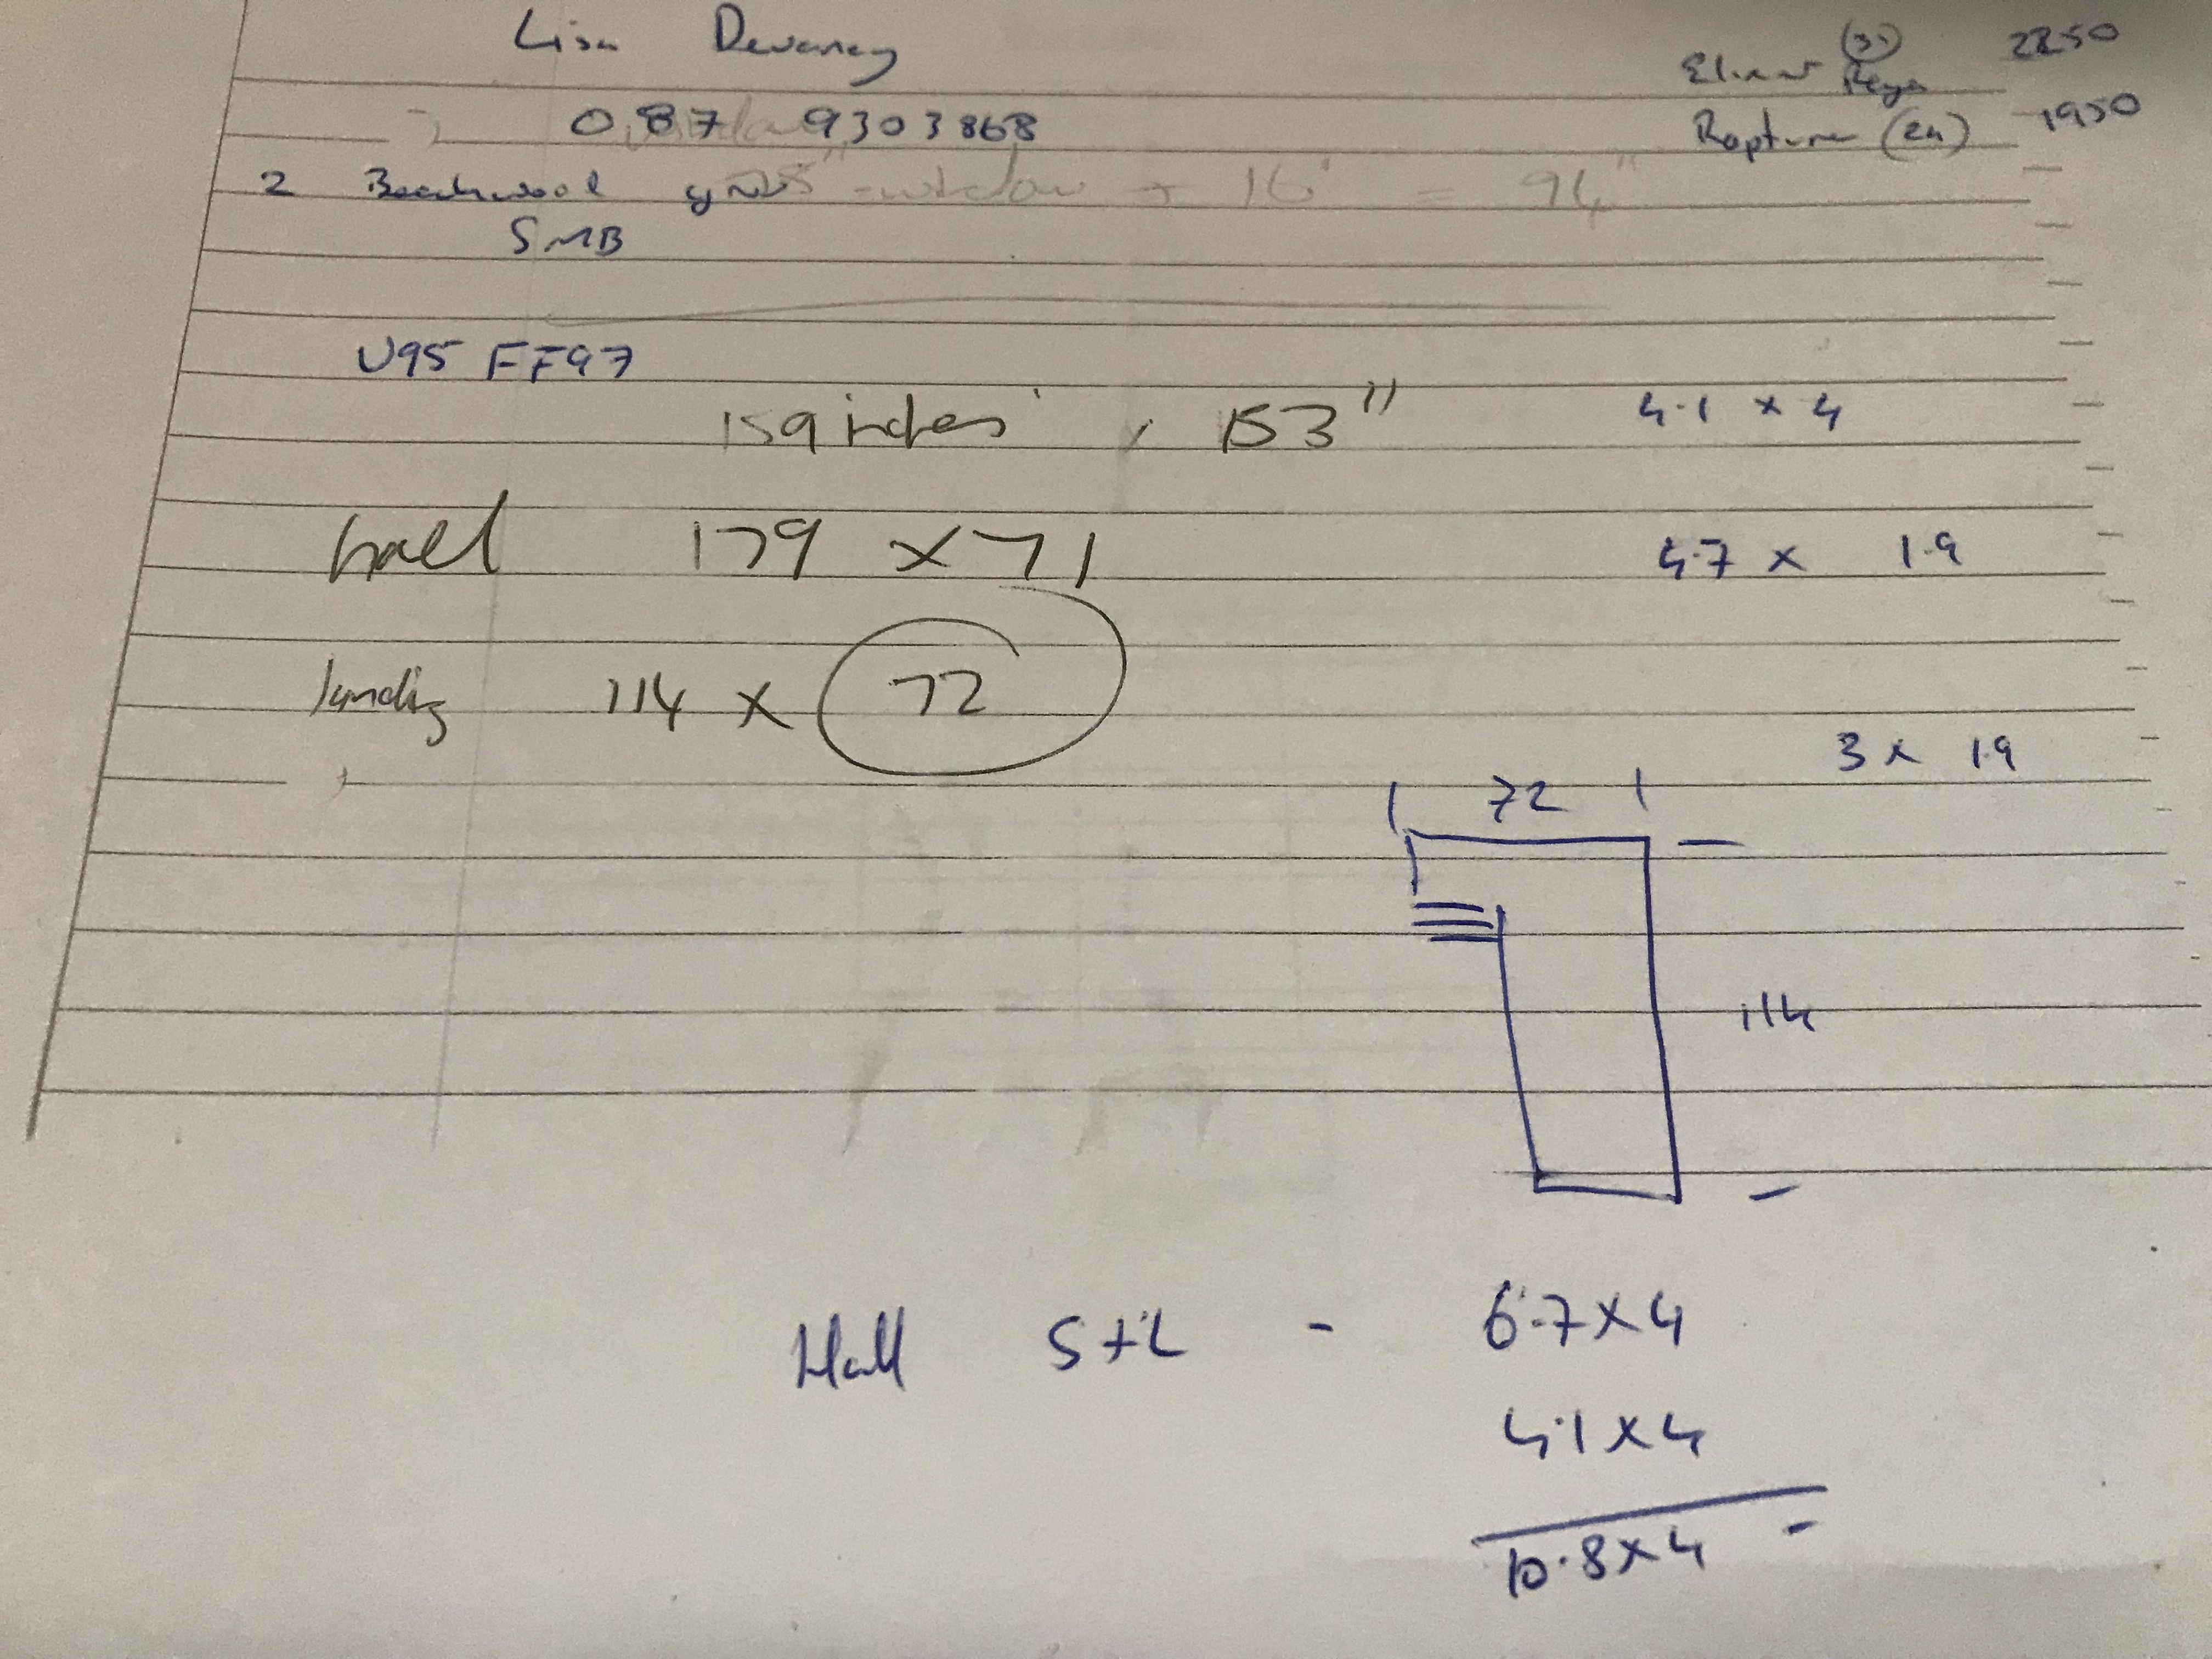 Lisa Devaney
(31) 2250
Raptur (24) 1950
087 9303868
2 Beechwood
window + 16" = 94"
SMB
U95 FF97
159 inches x 153" 4.1 x 4
hall 179 x 71 4.7 x 1.9
landing 114 x 72
3 x 1.9
72
114
Hall S+L - 6.7 x 4
4.1 x 4
10.8 x 4 -